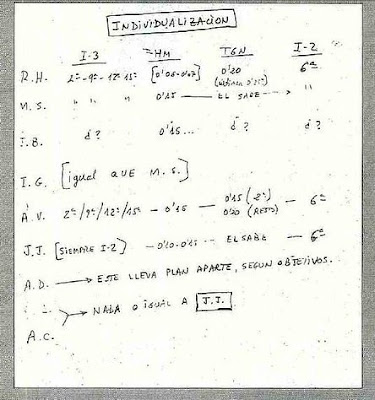 INDIVIDUALIZACION
I-3 HM TGN I-2
R.H. 2ª-9ª-12ª 15ª [0'06-0'07] 0'20 6ª
M.S. " " " 0'15 — EL SABE → "
I.B. d? 0'15... d? d?
I.G. [igual QUE M.S.]
A.V. 2ª/9ª/12ª/15ª — 0'15 — 0'15 (2ª) 0'20 (RESTO) — 6ª
J.J. [SIEMPRE I-2] — 0'10-0'15 -- EL SABE — 6ª
A.D. → ESTE LLEVA PLAN APARTE, SEGUN OBJETIVOS.
→ NADA O IGUAL A J.J.
A.C.